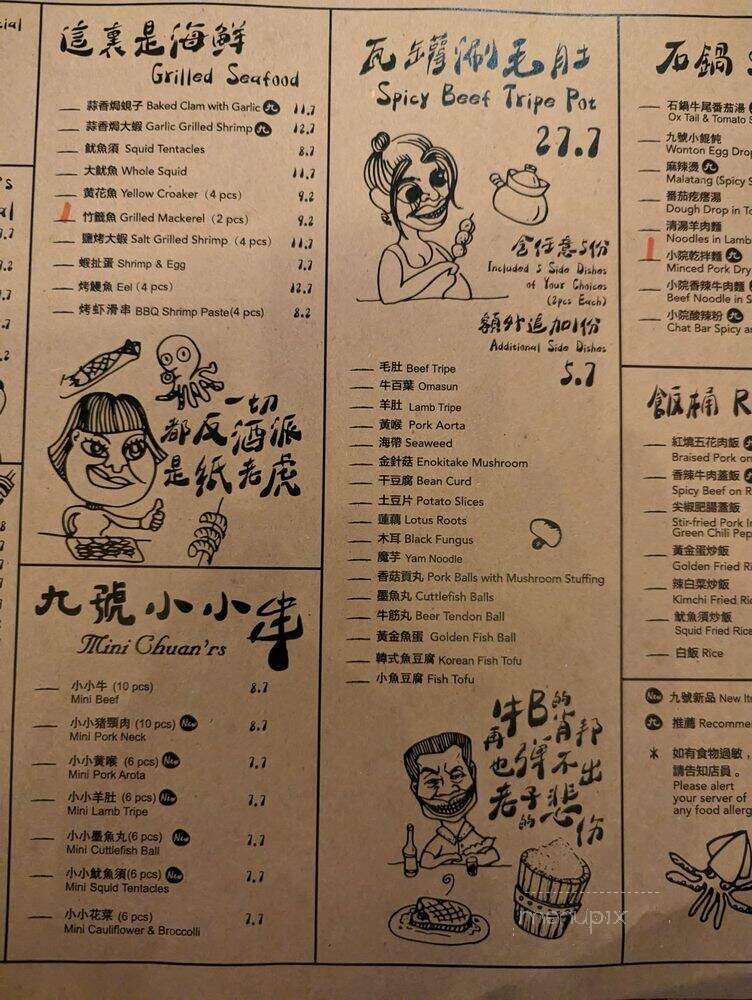 這裏是海鮮
Grilled Seafood
蒜香焗蜆子 Baked Clam with Garlic 九 11.7
蒜香焗大蝦 Garlic Grilled Shrimp 九 12.7
魷魚須 Squid Tentacles 8.7
大魷魚 Whole Squid 11.7
黄花魚 Yellow Croaker (4 pcs) 9.2
竹籤魚 Grilled Mackerel (2 pcs) 9.2
鹽烤大蝦 Salt Grilled Shrimp (4 pcs) 11.7
蝦扯蛋 Shrimp & Egg 7.7
烤鰻魚 Eel (4 pcs) 12.7
烤虾滑串 BBQ Shrimp Paste(4 pcs) 8.2
一切
都反酒派
是紙老虎
九號小小串
Mini Chuan'rs
小小牛 (10 pcs) 8.7
Mini Beef
小小猪頸肉 (10 pcs) New 8.7
Mini Pork Neck
小小黄喉 (6 pcs) New 7.7
Mini Pork Arota
小小羊肚 (6 pcs) New 7.7
Mini Lamb Tripe
小小墨魚丸(6 pcs) New 7.7
Mini Cuttlefish Ball
小小魷魚須(6 pcs) New 7.7
Mini Squid Tentacles
小小花菜 (6 pcs) 7.7
Mini Cauliflower & Broccolli
瓦罐涮毛肚
Spicy Beef Tripe Pot
27.7
含任意5份
Included 5 Side Dishes
of Your Choices
(2pcs Each)
額外追加1份
Additional Side Dishes
5.7
毛肚 Beef Tripe
牛百葉 Omasun
羊肚 Lamb Tripe
黃喉 Pork Aorta
海帶 Seaweed
金針菇 Enokitake Mushroom
干豆腐 Bean Curd
土豆片 Potato Slices
蓮藕 Lotus Roots
木耳 Black Fungus
魔芋 Yam Noodle
香菇貢丸 Pork Balls with Mushroom Stuffing
墨魚丸 Cuttlefish Balls
牛筋丸 Beer Tendon Ball
黃金魚蛋 Golden Fish Ball
韓式魚豆腐 Korean Fish Tofu
小魚豆腐 Fish Tofu
再牛B的肖邦
也彈不出
老子的悲份
menupix
石鍋
石鍋牛尾番茄湯
Ox Tail & Tomato S
九號小餛飩
Wonton Egg Drop
麻辣燙 九
Malatang (Spicy S
番茄疙瘩湯
Dough Drop in To
清湯羊肉麵
Noodles in Lamb
小院乾拌麵 九
Minced Pork Dry
小院香辣牛肉麵 九
Beef Noodle in S
小院酸辣粉 九
Chat Bar Spicy a
飯桶 R
紅燒五花肉飯
Braised Pork on
香辣牛肉蓋飯
Spicy Beef on R
尖椒肥腸蓋飯
Stir-fried Pork In
Green Chili Pep
黃金蛋炒飯
Golden Fried Ri
辣白菜炒飯
Kimchi Fried Ric
魷魚須炒飯
Squid Fried Rice
白飯 Rice
New 九號新品 New Ite
九 推薦 Recomme
* 如有食物過敏，
請告知店員。
Please alert
your server of
any food allerg